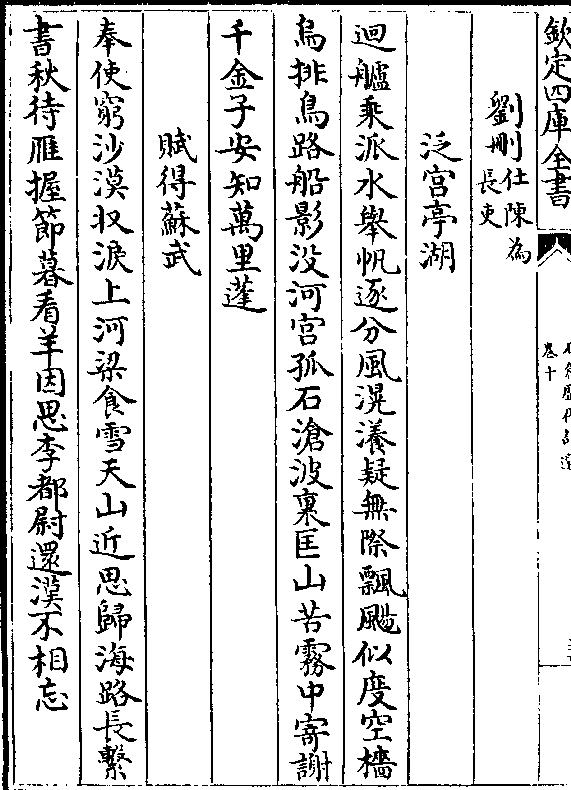 欽定四庫全書
卷十
劉刪仕陳為長史
泛宮亭湖
迴艫乘派水舉帆逐分風滉瀁疑無際飄颺似度空檣
烏排鳥路船影没河宮孤石滄波裏匡山苦霧中寄謝
千金子安知萬里蓬
賦得蘇武
奉使窮沙漠収淚上河梁食雪天山近思歸海路長繫
書秋待雁握節暮看羊因思李都尉還漢不相忘